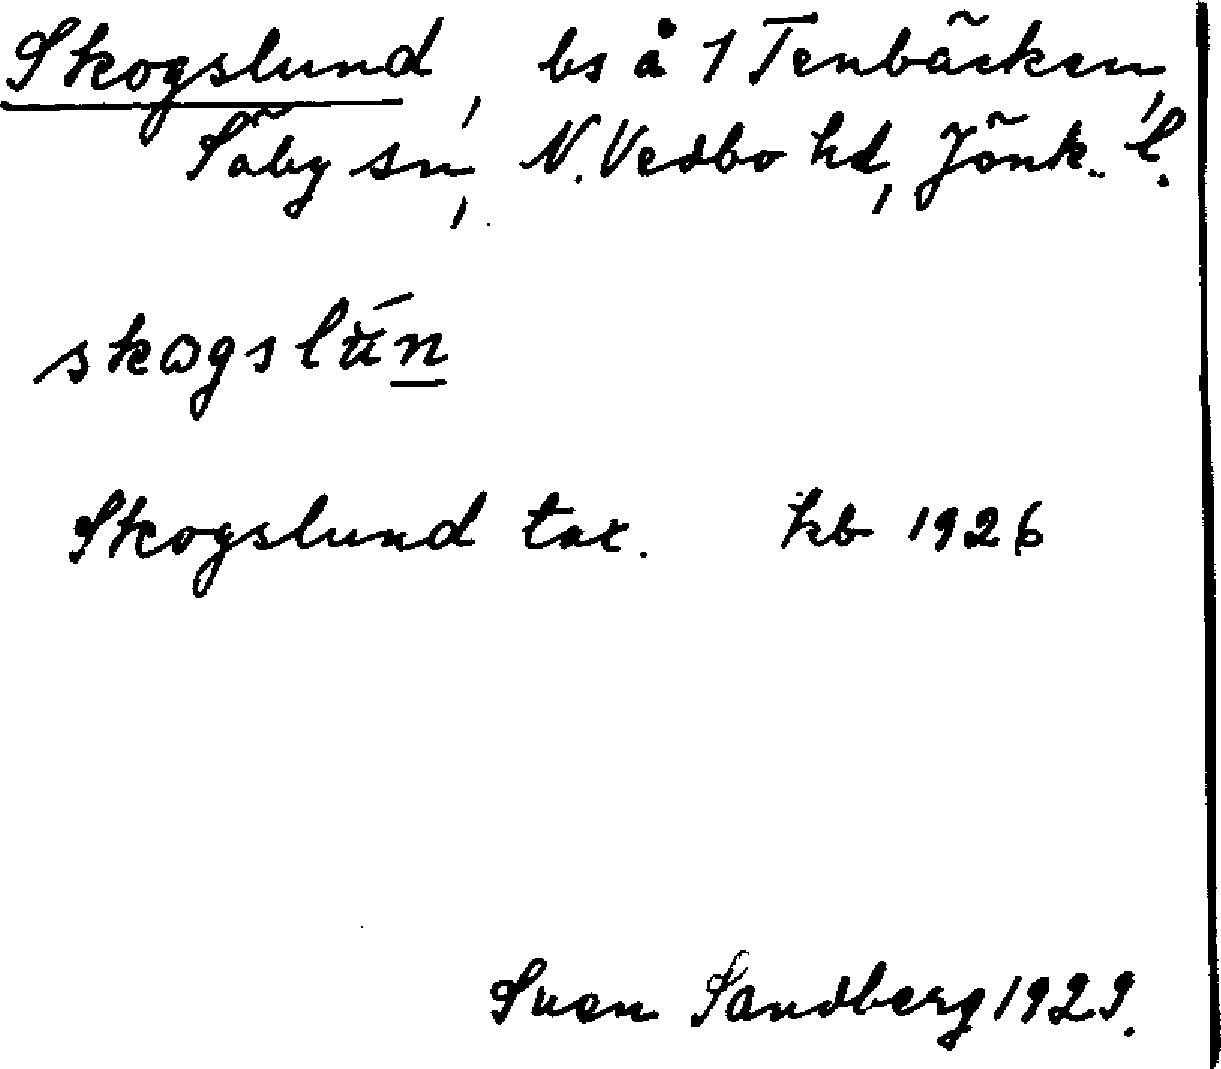 Skogslund, bs å 1 Tenbäcken,
Säby sn, N. Vedbo hd, Jönk. l.
skogslún
Skogslund tax. kb 1926
Sven Sandberg 1929.